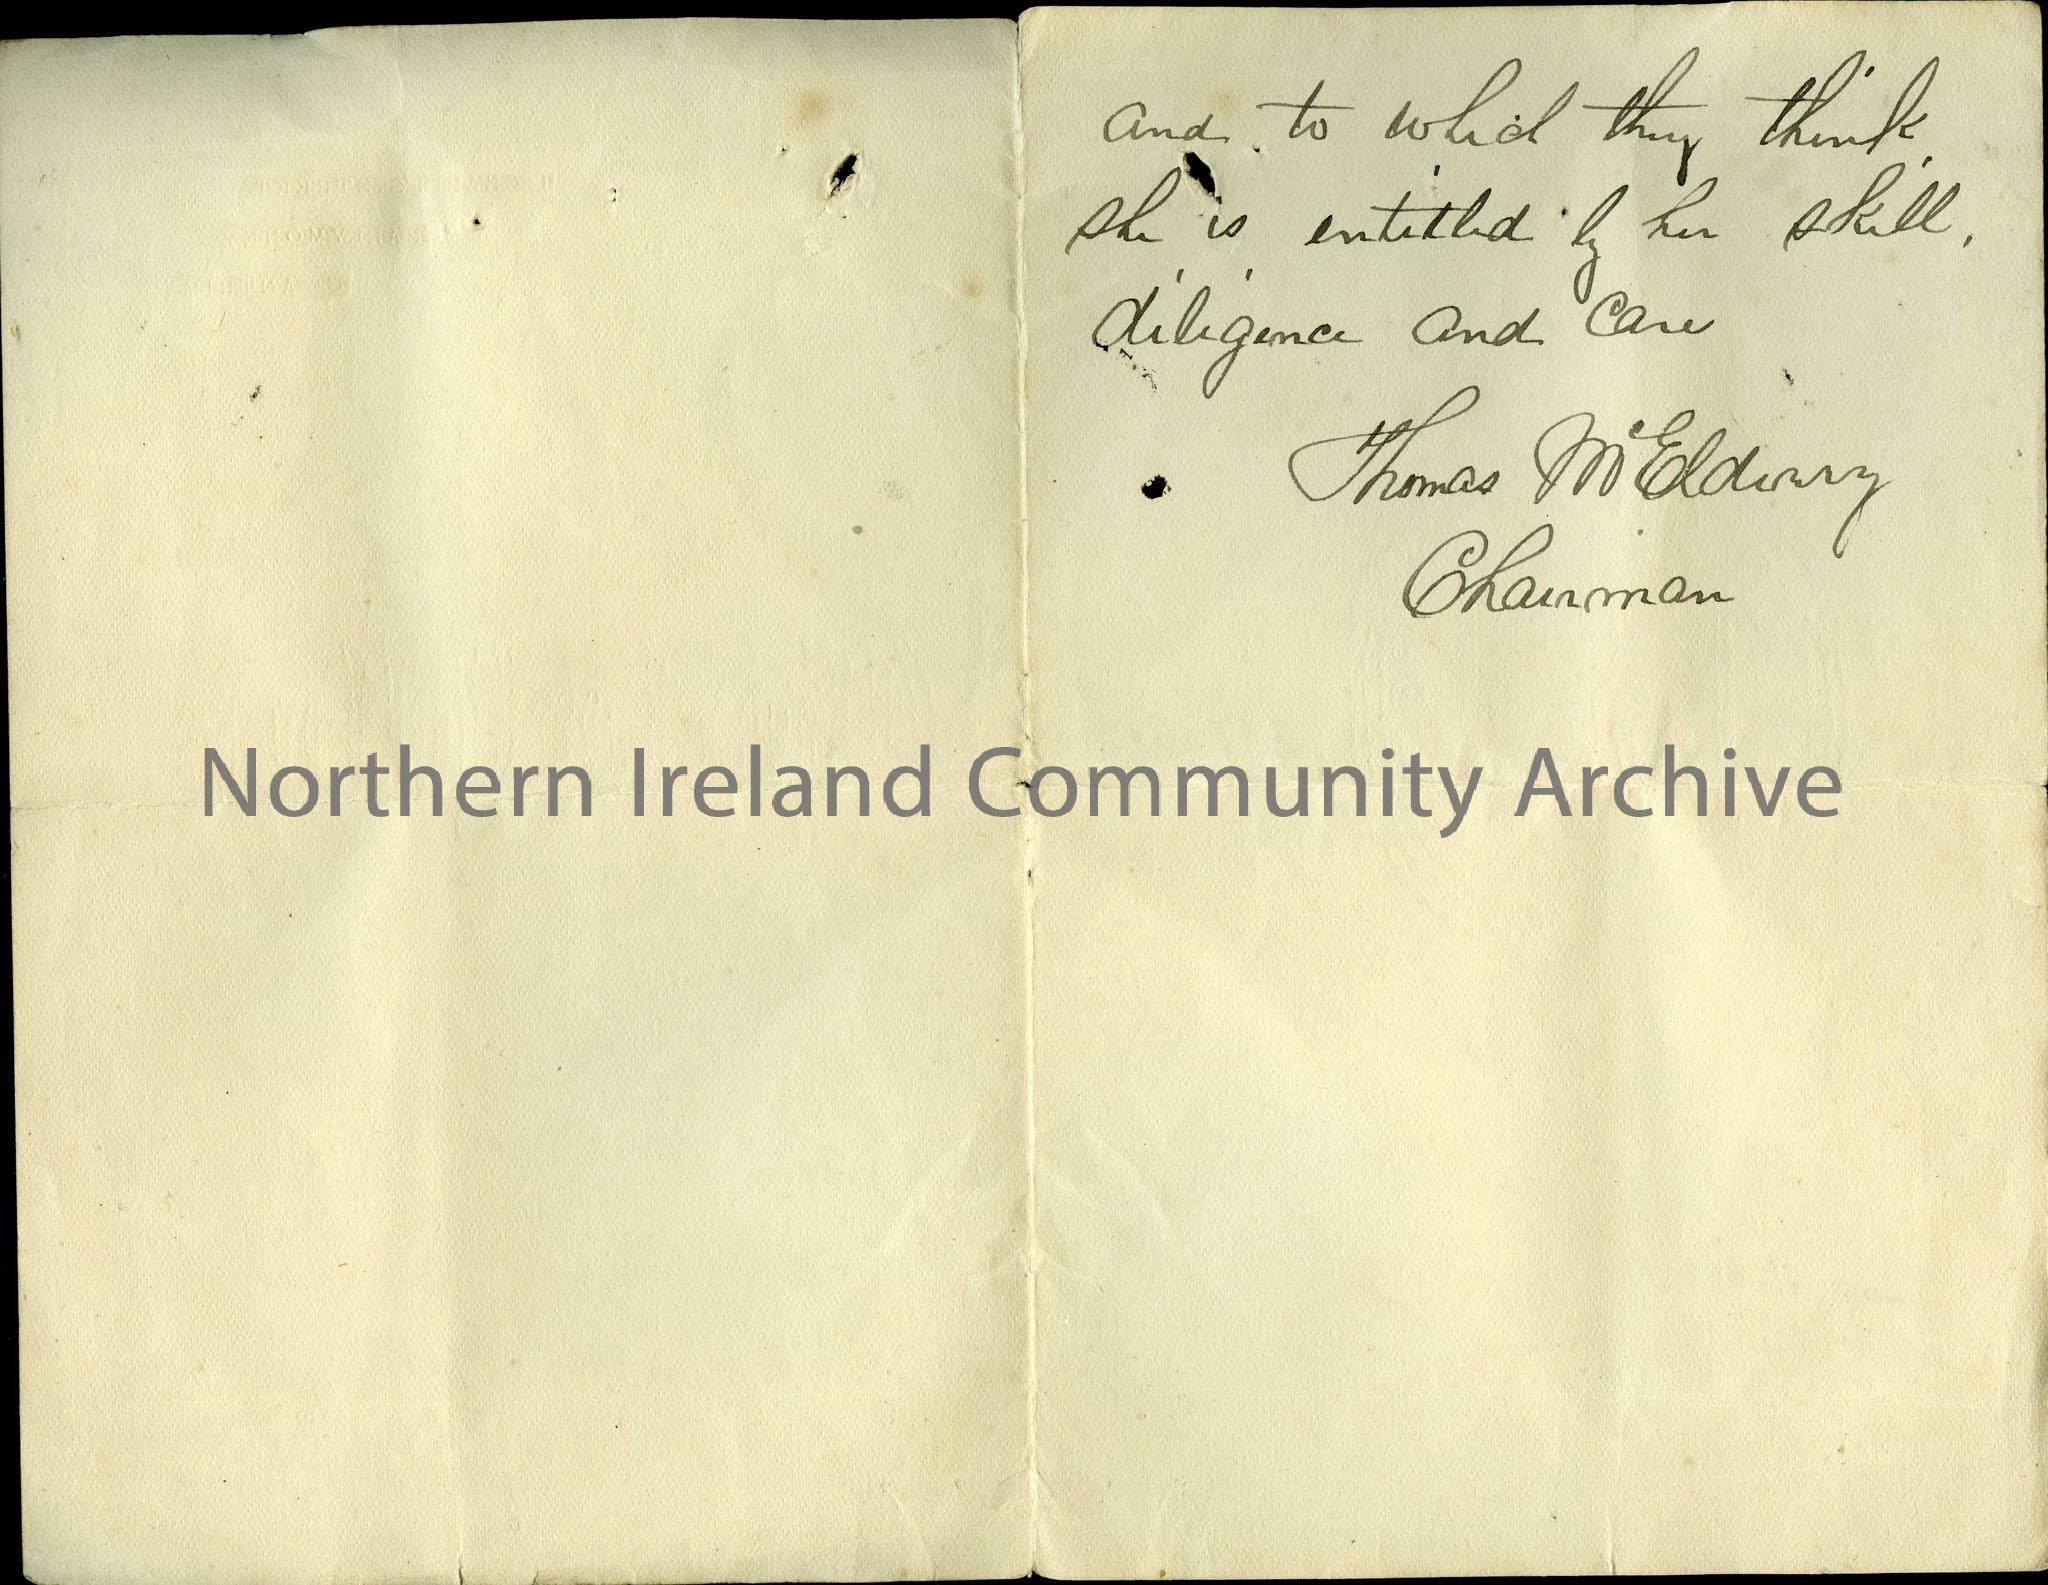 and to which they think
she is entitled by her skill,
diligence and care
Thomas McElderry
Chairman
Northern Ireland Community Archive